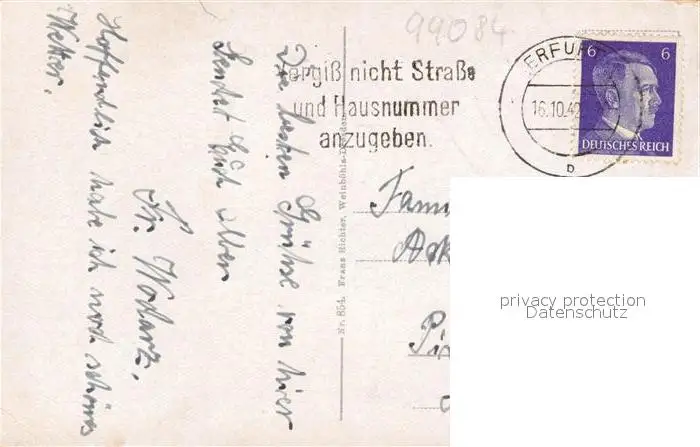 99084
ERFURT
16.10.42
D
6 6
DEUTSCHES REICH
ergiß nicht Straße
und Hausnummer
anzugeben.
Die besten Grüße von hier
sendet Euch allen
Fr.
Hoffentlich habt ihr noch schönes
Wetter.
Nr. 854. Franz Richter, Weinböhla-Dresden
Fam
Ack
Pi
privacy protection
Datenschutz